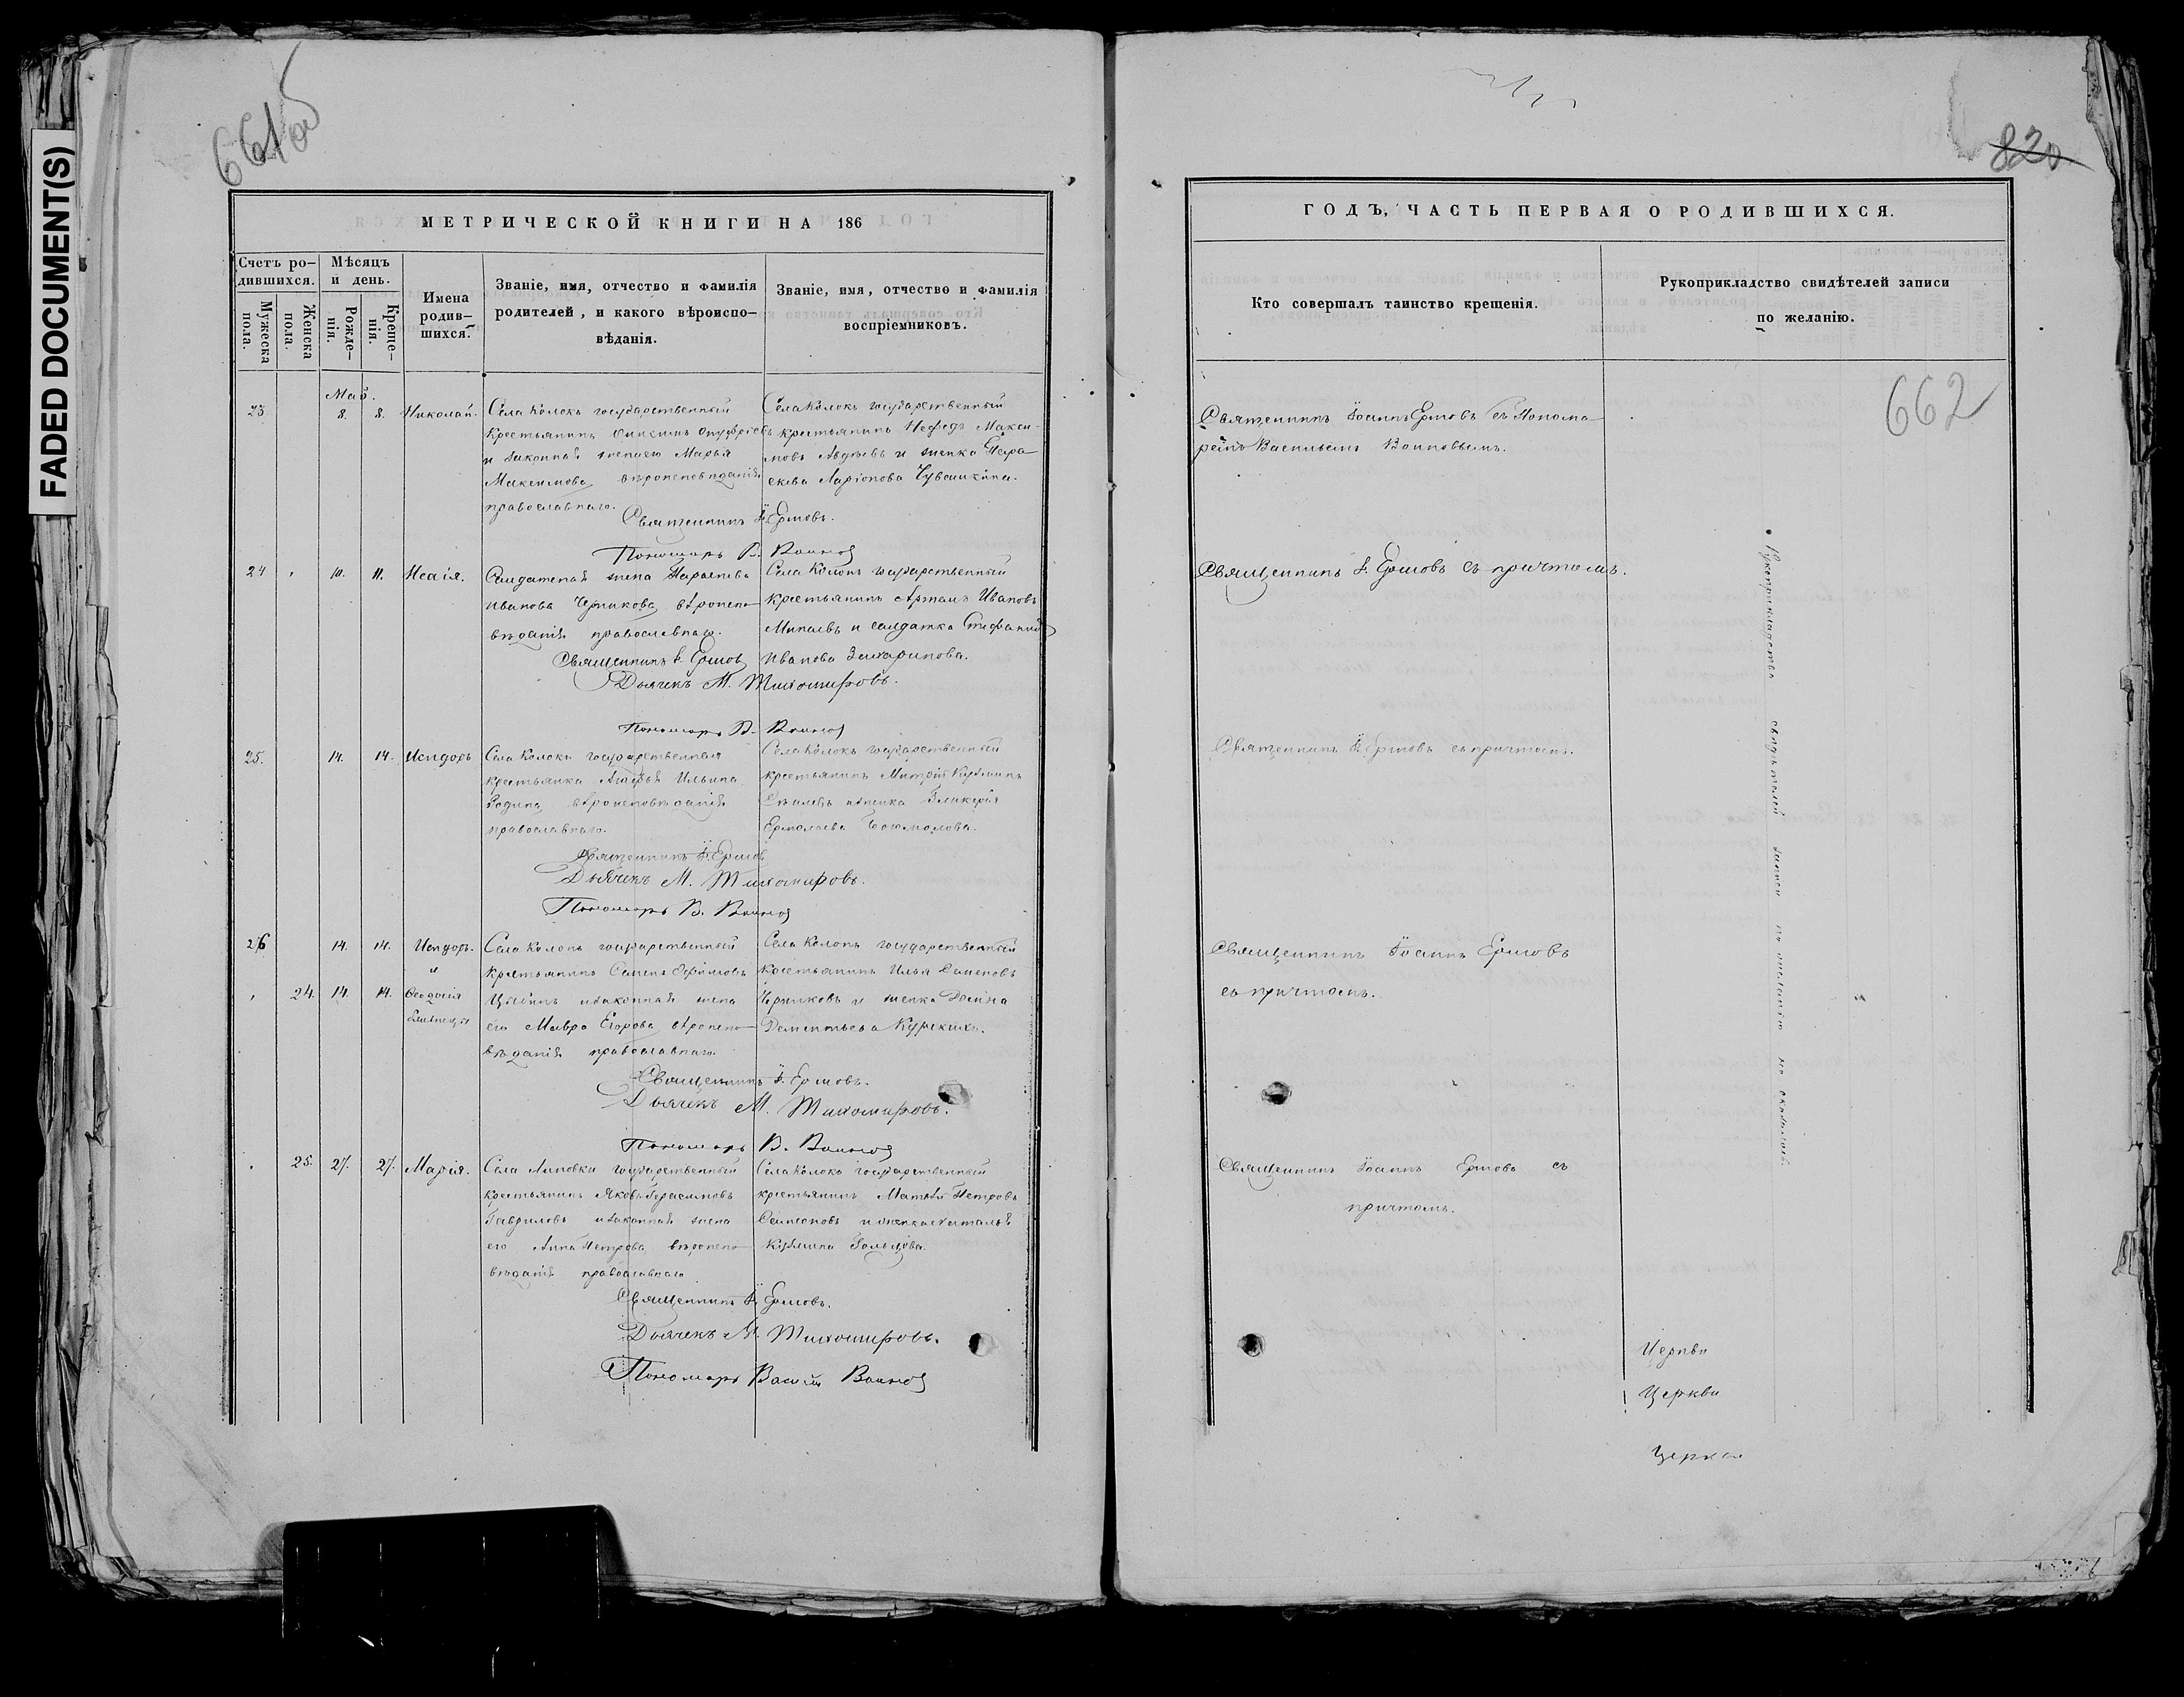 FADED DOCUMENT(S)
661 об
МЕТРИЧЕСКОЙ КНИГИ НА 186
Счетъ ро-
дившихся.
Мужеска
пола.
Женска
пола.
Мѣсяцъ
и день.
Рожде-
нія.
Креще-
нія.
Имена
родив-
шихся.
Званіе, имя, отчество и фамилія
родителей, и какого вѣроиспо-
вѣданія.
Званіе, имя, отчество и фамилія
воспріемниковъ.
Май.
23 8. 8. Николай.
Села Колокъ государственный
крестьянинъ
и законная женаего Марья
Максимова вѣроисповѣданія
православнаго.
Села Колокъ государственный
крестьянинъ Нефедъ Макси-
мовъ Авдѣевъ и женка Пера-
скева Ларіонова Чувашкина.
Священникъ І. Ершовъ.
Пономарь В. Воиновъ
24 10. 11. Исаія.
Солдатская жена Параскева
Иванова Черникова, вѣроиспо-
вѣданія православнаго.
Села Колокъ государственный
крестьянинъ Артемъ Ивановъ
Минаевъ и солдатка Стефанида
Иванова
Священникъ І. Ершовъ
Дьячекъ М. Тихомировъ.
Пономарь В. Воиновъ
25. 14. 14. Исидоръ
Села Колокъ государственная
крестьянка Ильина
Родина, вѣроисповѣданія
православнаго.
Села Колокъ государственный
крестьянинъ Митрій Кузминъ
и женка Гликерія
Ермолаева
Священникъ І. Ершовъ
Дьячекъ М. Тихомировъ.
Пономарь В. Воиновъ
26 14. 14. Исидоръ.
и
24. 14. 14. Ѳеодосія
близнецы
Села Колокъ государственный
крестьянинъ Семенъ Ефимовъ
и законная жена
его Мавра Егорова, вѣроиспо-
вѣданія православнаго.
Села Колокъ государственный
крестьянинъ Илья Семеновъ
Черниковъ и женка
Дементьева Курскихъ.
Священникъ І. Ершовъ.
Дьячекъ М. Тихомировъ.
Пономарь В. Воиновъ
25. 27. 27. Марія.
Села Липовки государственный
крестьянинъ Яковъ Герасимовъ
Гавриловъ и законная жена
его Анна Петрова вѣроиспо-
вѣданія православнаго
Села Колокъ государственный
крестьянинъ Матвѣй Петровъ
и женка Наталья
Кузмина
Священникъ І. Ершовъ.
Дьячекъ М. Тихомировъ.
Пономарь Васил Воиновъ
820
ГОДЪ, ЧАСТЬ ПЕРВАЯ О РОДИВШИХСЯ.
Кто совершалъ таинство крещенія.
Рукоприкладство свидѣтелей записи
по желанію.
662
Священникъ Іоаннъ Ершовъ съ Понома-
ремъ Васильемъ Воиновымъ.
Священникъ І. Ершовъ съ причтомъ.
Священникъ І. Ершовъ съ причтомъ.
Священникъ Іоаннъ Ершовъ
съ причтомъ.
Священникъ Іоаннъ Ершовъ съ
причтомъ.
Рукоприкладства свидѣтелей записи по желанію не оказалось.
Церкви
Церкви
Церкви